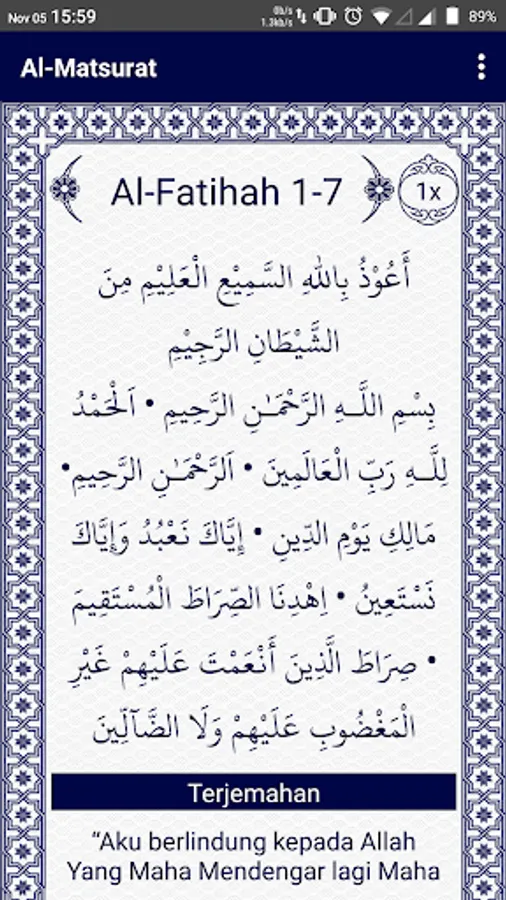 Nov 05 15:59
0b/s
1.3kb/s
89%
Al-Matsurat
Al-Fatihah 1-7
1x
أَعُوْذُ بِاللهِ السَّمِيْعِ الْعَلِيْمِ مِنَ
الشَّيْطَانِ الرَّجِيْمِ
بِسْمِ اللَّـهِ الرَّحْمَـٰنِ الرَّحِيمِ • اَلْحَمْدُ
لِلَّـهِ رَبِّ الْعَالَمِينَ • اَلرَّحْمَـٰنِ الرَّحِيمِ •
مَالِكِ يَوْمِ الدِّينِ • إِيَّاكَ نَعْبُدُ وَإِيَّاكَ
نَسْتَعِينُ • اِهْدِنَا الصِّرَاطَ الْمُسْتَقِيمَ
• صِرَاطَ الَّذِينَ أَنْعَمْتَ عَلَيْهِمْ غَيْرِ
الْمَغْضُوبِ عَلَيْهِمْ وَلَا الضَّآلِّينَ
Terjemahan
“Aku berlindung kepada Allah
Yang Maha Mendengar lagi Maha